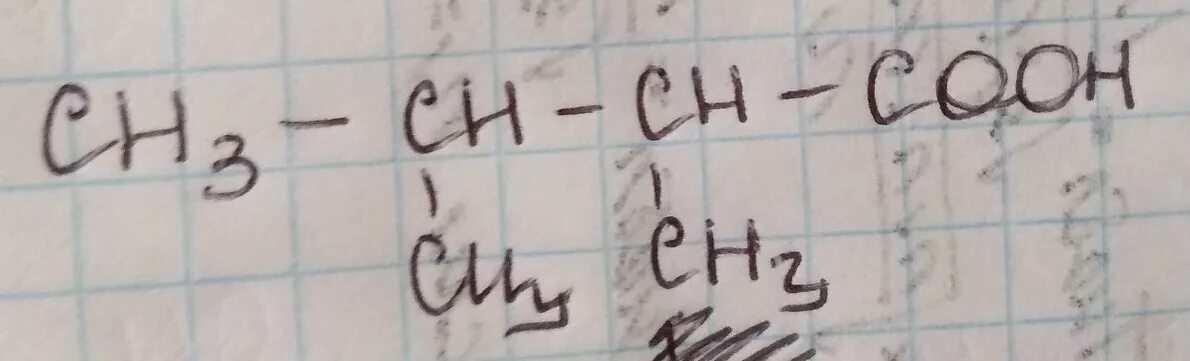 CH3 - CH - CH - COOH
CH3 CH3